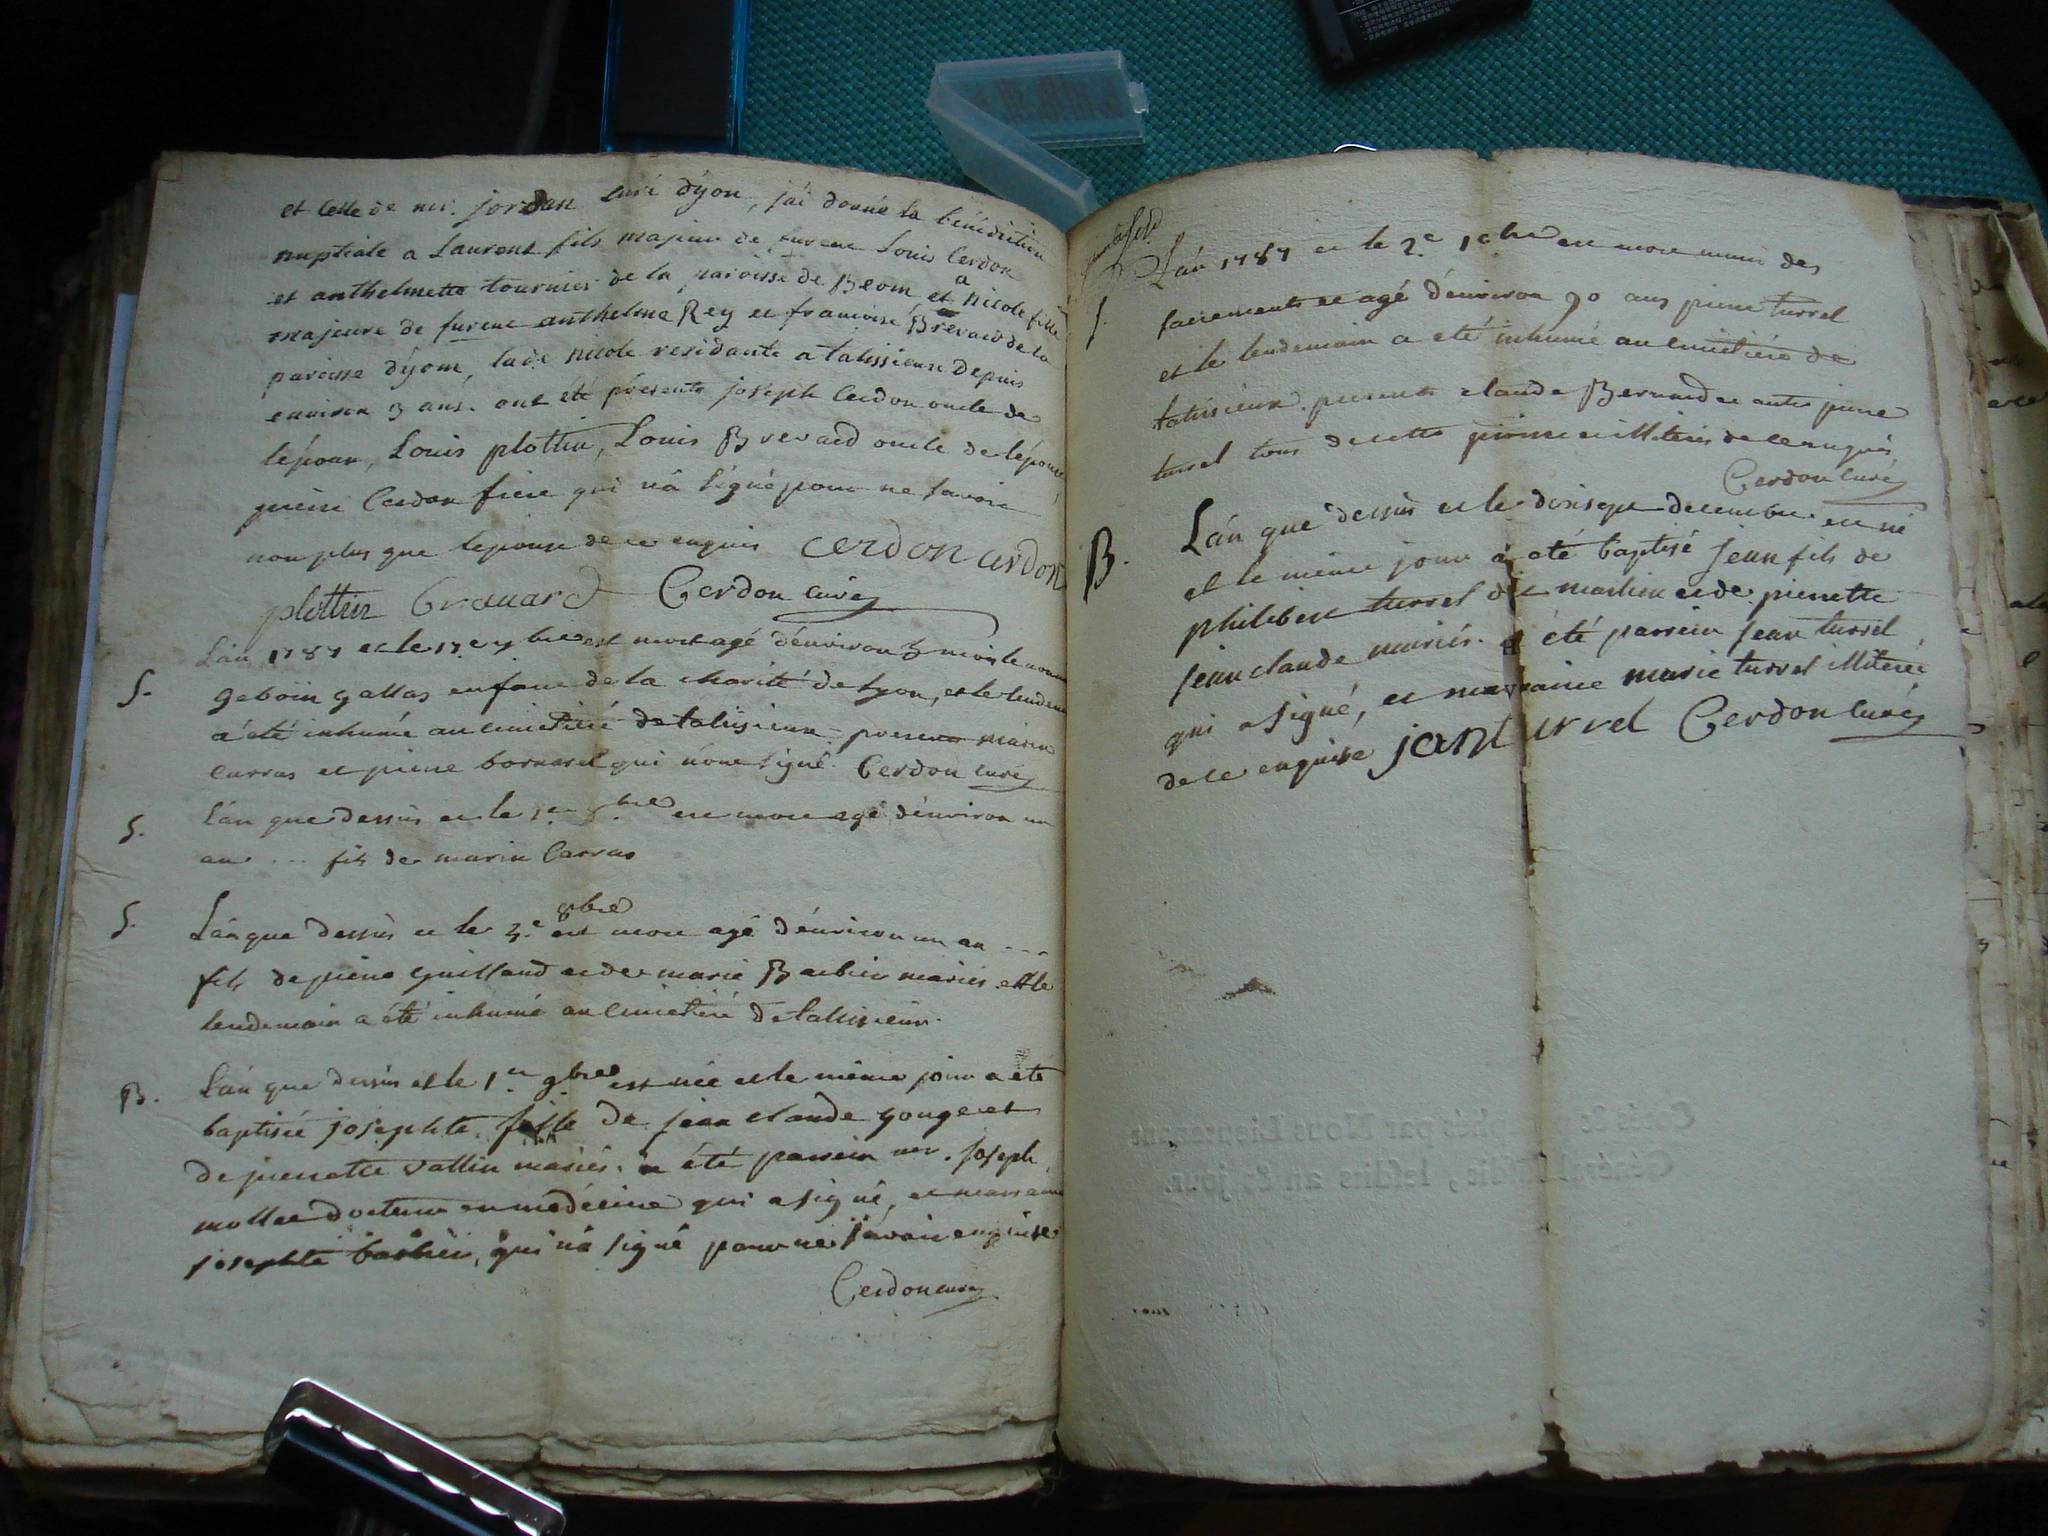 et celle de mr. jordan curé d'yon, j'ai donné la bénédiction
nuptiale a Laurent fils majeur de furent Louis Cerdon
et anthelmette tournier de la paroisse de Beom, et a nicole fille
majeure de furent anthelme Rey et francoise Brevard de la
paroisse d'yom, lade nicole residante a talissieux depuis
environ 3 ans. ont été présents joseph Cerdon oncle de
l'époux, Louis plottin, Louis Brevard oncle de l'épouse,
pierre Cerdon frere qui n'a signé pour ne savoir
non plus que lepouse de ce enquis cerdon cerdon
plottin Brauard Cerdon curé
L'an 1787 et le 17e 7bre est mort agé d'environ 3 mois le nommé
S. geboin gallas enfant de la charité de lyon, et le lendem
a été inhumé au cimetiere de talissieux presents marin
carras et pierre bornard qui n'ont signé. Cerdon curé
S. L'an que dessus et le 1er 8bre est mort agé d'environ un
an ... fils de marin Carras
8bre
S. L'an que dessus et le 3e est mort agé d'environ un an ...
fils de pierre Guilland et de marie Barbier mariés et le
lendemain a été inhumé au cimetiere de talissieux.
B. L'an que dessus et le 1er 9bre est née et le même jour a été
baptisée josephte fille de jean claude gouget et
de pierrette vallin mariés. a été parrein mr. joseph
mollet docteur en médecine qui a signé, et marraine
josephte barbier, qui n'a signé pour ne savoir enquise
Cerdon curé
L'an 1787 et le 2e 10bre est mort muni des
S. sacrements et agé d'environ 70 ans pierre turrel
et le lendemain a été inhumé au cimetiére de
talissieux. presents claude Bernard et autre pierre
turrel tous de cette paroisse illiterés de ce enquis
Cerdon curé
L'an que dessus et le dixsept decembre est né
B. et le même jour a été baptisé jean fils de
philibert turrel dit martin et de pierrette
jean claude mariés. a été parrein jean turrel
qui a signé, et marraine marie turrel illiterée
de ce enquise jan turrel Cerdon curé